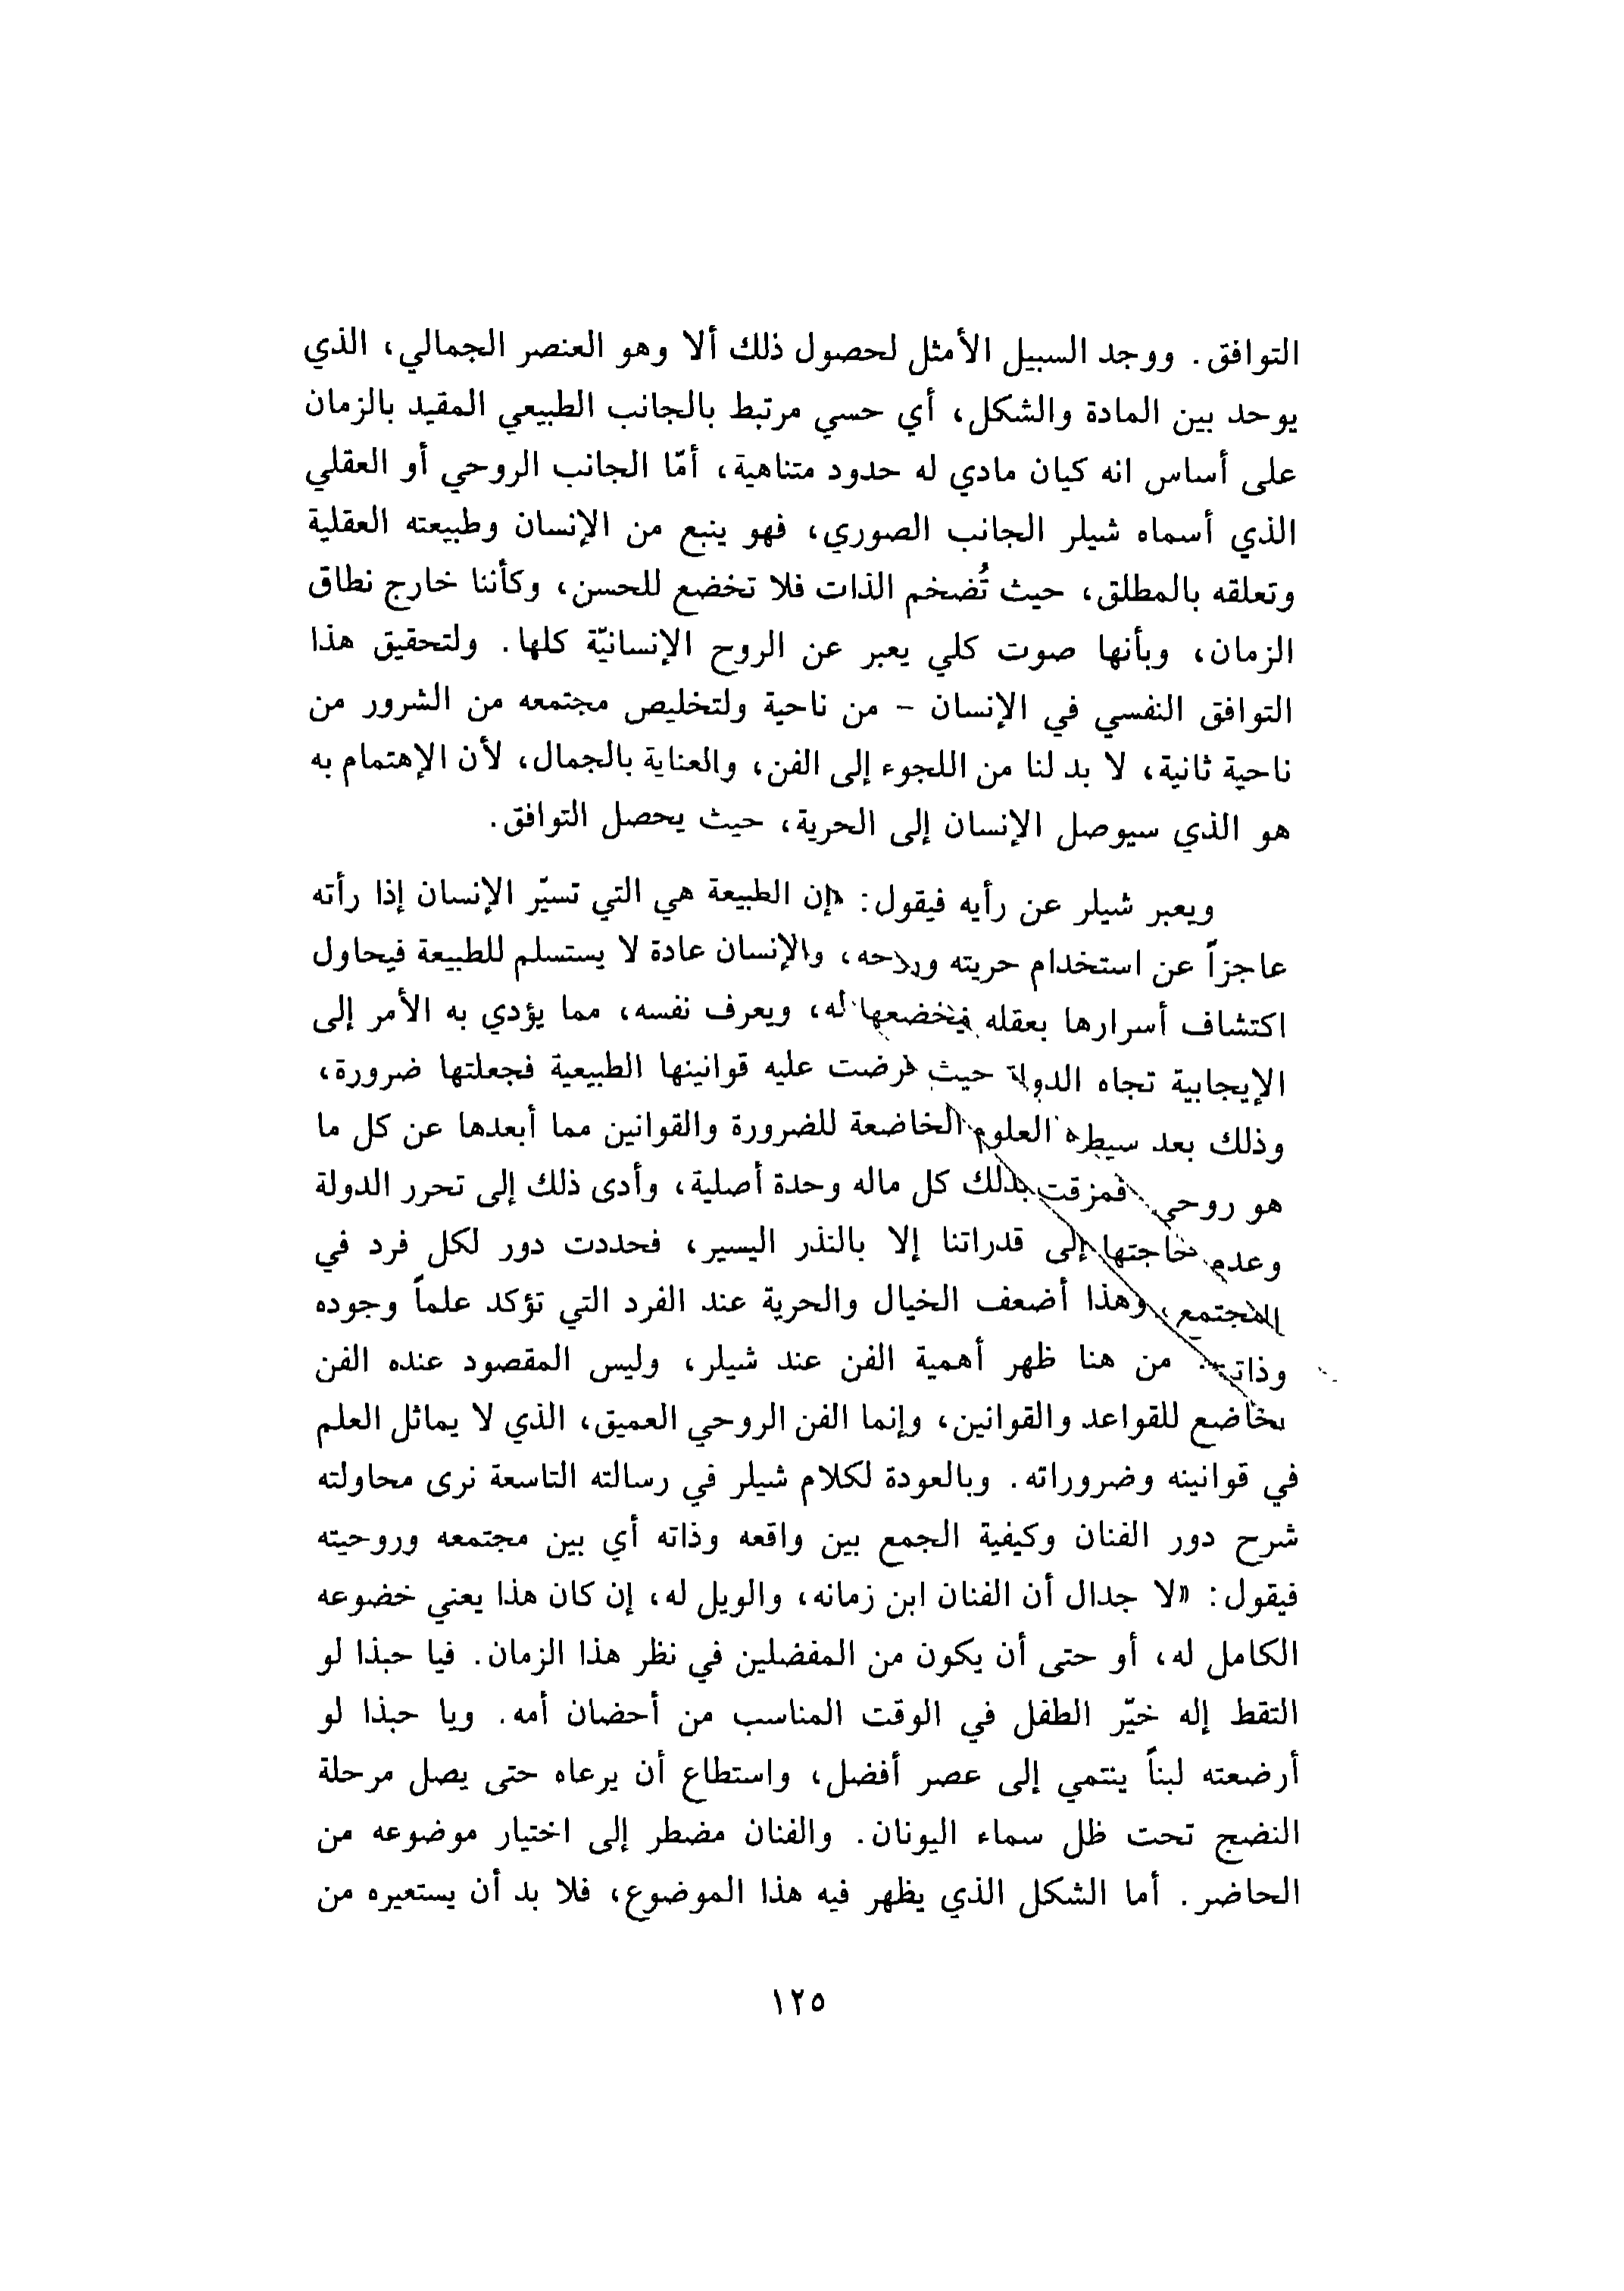 التوافق. ووجد السبيل الأمثل لحصول ذلك ألا وهو العنصر الجمالي، الذي
يوحد بين المادة والشكل، أي حسي مرتبط بالجانب الطبيعي المقيد بالزمان
على أساس انه كيان مادي له حدود متناهية، أمّا الجانب الروحي أو العقلي
الذي أسماه شيلر الجانب الصوري، فهو ينبع من الإنسان وطبيعته العقلية
وتعلقه بالمطلق، حيث تُضخم الذات فلا تخضع للحسن، وكأننا خارج نطاق
الزمان، وبأنها صوت كلي يعبر عن الروح الإنسانيّة كلها. ولتحقيق هذا
التوافق النفسي في الإنسان - من ناحية ولتخليص مجتمعه من الشرور من
ناحية ثانية، لا بد لنا من اللجوء إلى الفن، والعناية بالجمال، لأن الإهتمام به
هو الذي سيوصل الإنسان إلى الحرية، حيث يحصل التوافق.
ويعبر شيلر عن رأيه فيقول: «إن الطبيعة هي التي تسيّر الإنسان إذا رأته
عاجزاً عن استخدام حريته وروحه، والإنسان عادة لا يستسلم للطبيعة فيحاول
اكتشاف أسرارها بعقله فيخضعها له، ويعرف نفسه، مما يؤدي به الأمر إلى
الإيجابية تجاه الدولة حيث فرضت عليه قوانينها الطبيعية فجعلتها ضرورة،
وذلك بعد سيطرة العلوم الخاضعة للضرورة والقوانين مما أبعدها عن كل ما
هو روحي فمزقت بذلك كل ماله وحدة أصلية، وأدى ذلك إلى تحرر الدولة
وعدم حاجتها إلى قدراتنا إلا بالنذر اليسير، فحددت دور لكل فرد في
المجتمع، وهذا أضعف الخيال والحرية عند الفرد التي تؤكد علماً وجوده
وذاته. من هنا ظهر أهمية الفن عند شيلر، وليس المقصود عنده الفن
بخاضع للقواعد والقوانين، وإنما الفن الروحي العميق، الذي لا يماثل العلم
في قوانينه وضروراته. وبالعودة لكلام شيلر في رسالته التاسعة نرى محاولته
شرح دور الفنان وكيفية الجمع بين واقعه وذاته أي بين مجتمعه وروحيته
فيقول: «لا جدال أن الفنان ابن زمانه، والويل له، إن كان هذا يعني خضوعه
الكامل له، أو حتى أن يكون من المفضلين في نظر هذا الزمان. فيا حبذا لو
التقط إله خيّر الطفل في الوقت المناسب من أحضان أمه. ويا حبذا لو
أرضعته لبناً ينتمي إلى عصر أفضل، واستطاع أن يرعاه حتى يصل مرحلة
النضج تحت ظل سماء اليونان. والفنان مضطر إلى اختيار موضوعه من
الحاضر. أما الشكل الذي يظهر فيه هذا الموضوع، فلا بد أن يستعيره من
١٢٥